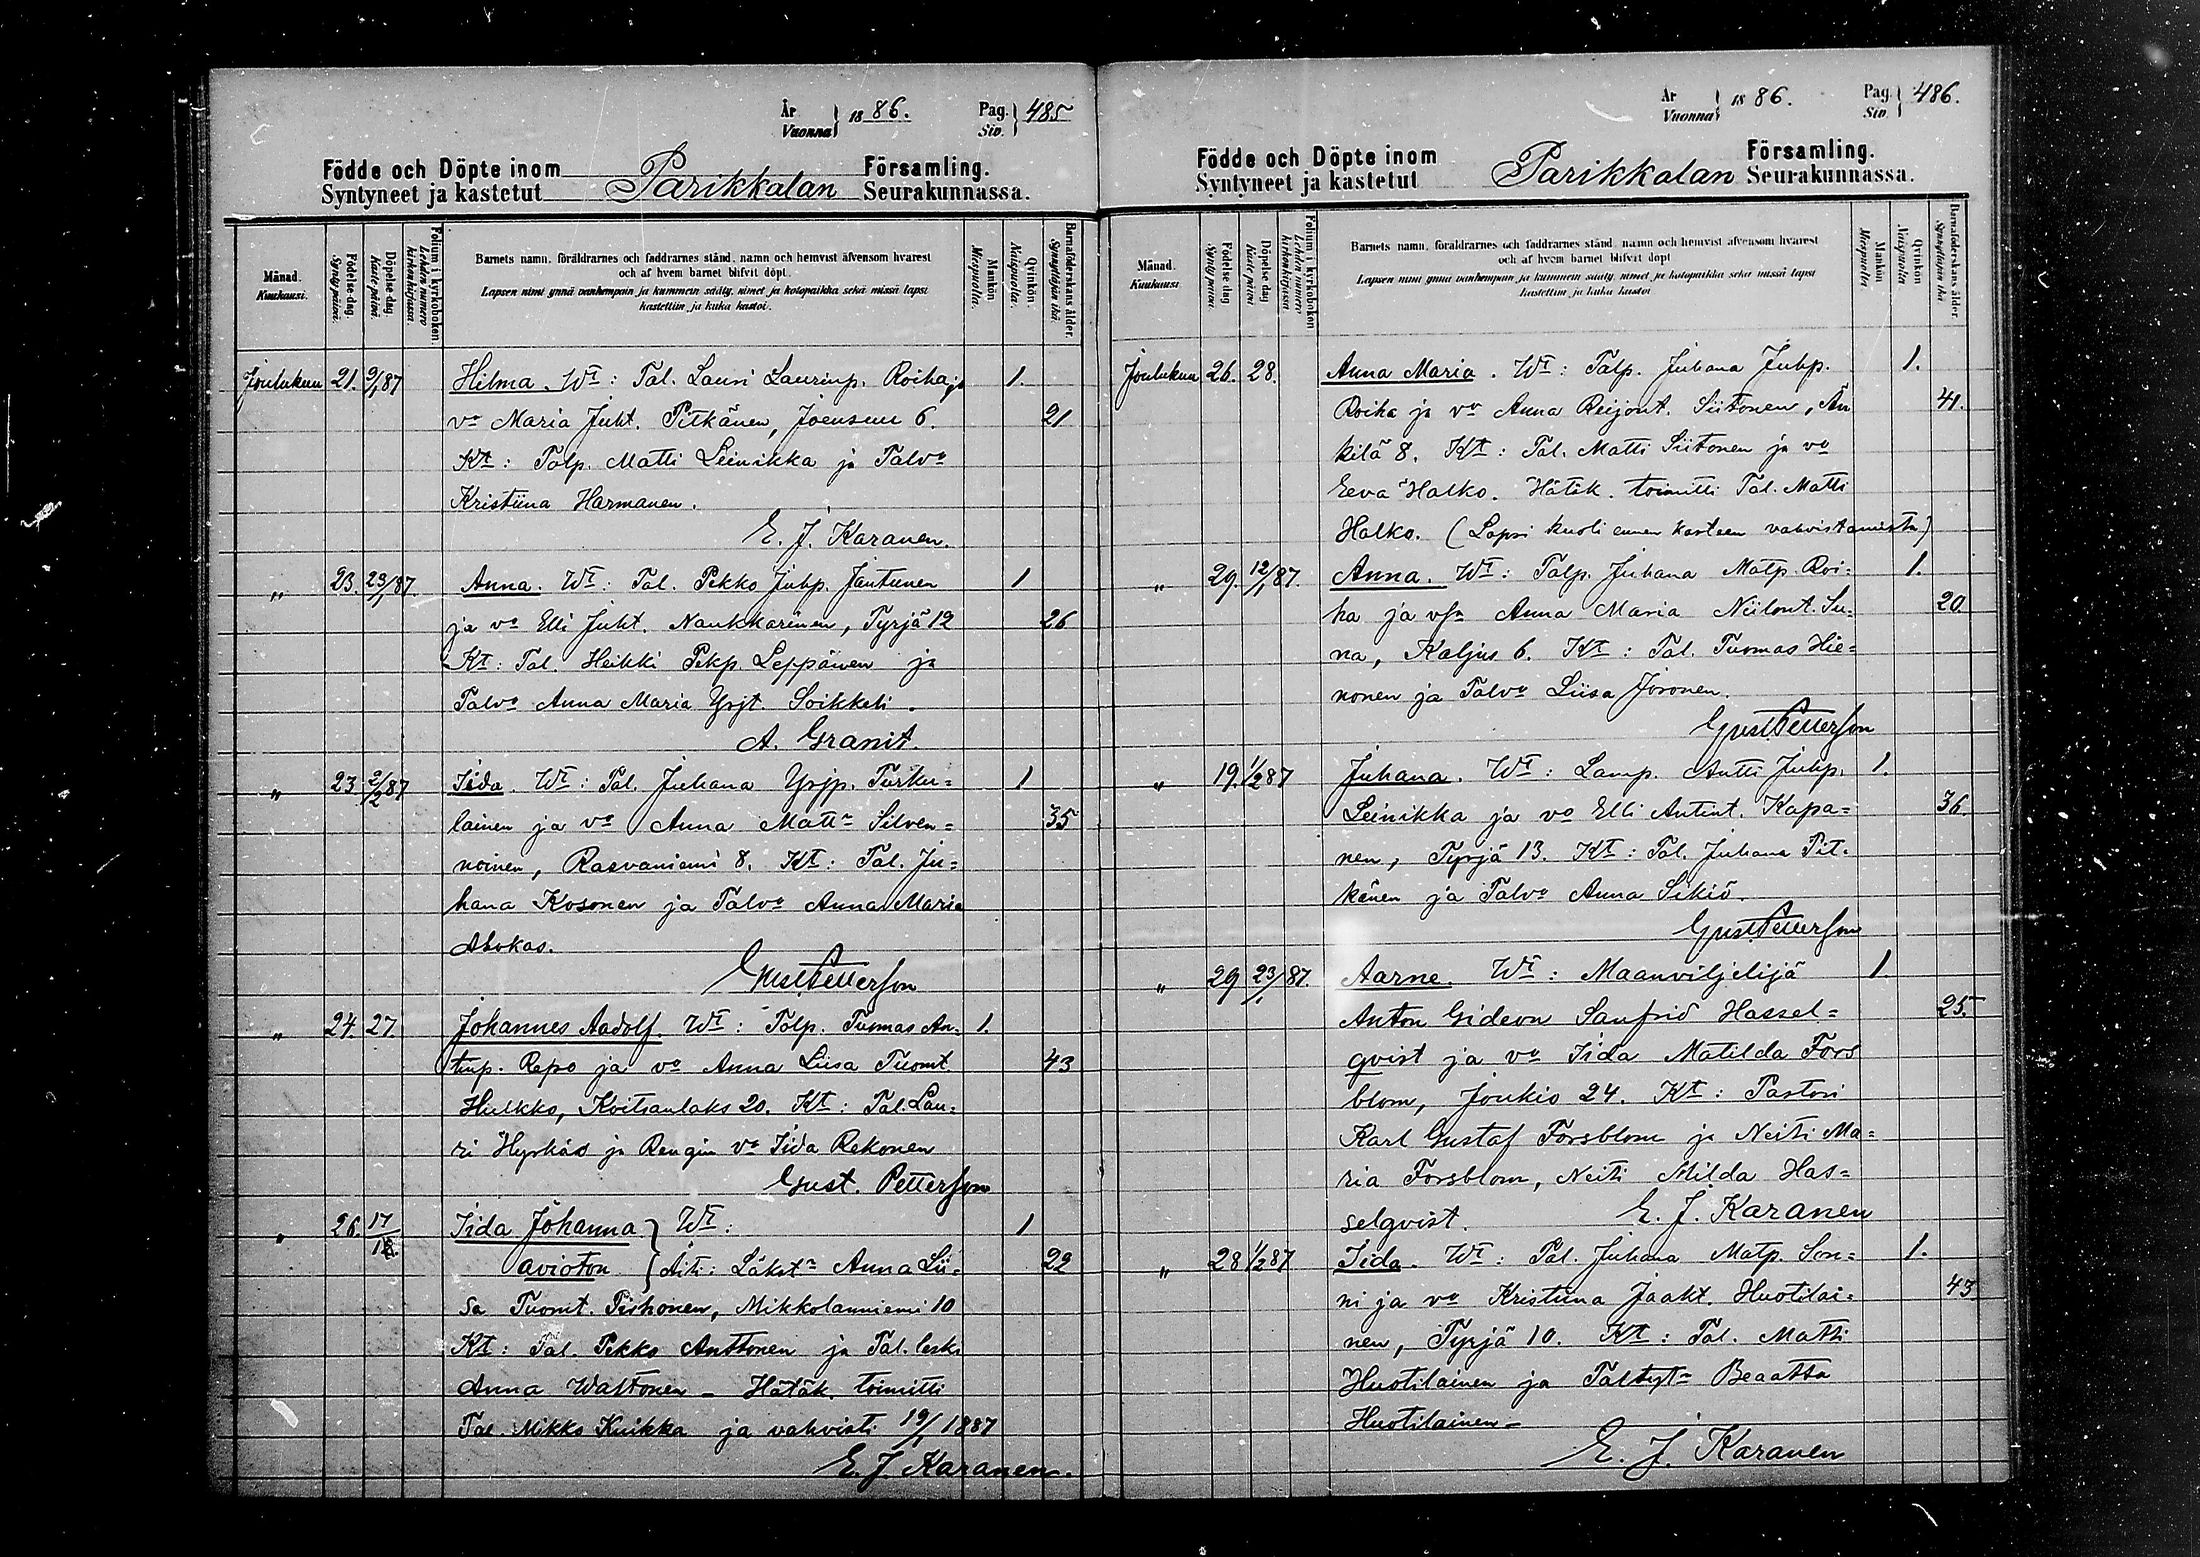 År
Vuonna } 1886.
Pag.
Siv. } 485
Födde och Döpte inom Parikkalan Församling.
Syntyneet ja kastetut Seurakunnassa.
Månad.
Kuukausi.
Födelse-dag.
Synty päivä.
Döpelse-dag.
Kaste päivä.
Folium i kyrkoboken:
Lehden numero
kirkonkirjassa.
Barnets namn, föräldrarnes och faddrarnes stånd, namn och hemvist äfvensom hvarest
och af hvem barnet blifvit döpt.
Lapsen nimi ynnä vanhempain ja kummein sääty, nimet ja kotopaikka sekä missä lapsi
kastettiin ja kuka kastoi.
Mankön
Miespuolia.
Qvinkön
Naispuolia.
Barnaföderskans ålder.
Synnyttäjän ikä.
Joulukuu 21. 9/1 87 Hilma. Wt: Tal. Lauri Laurinp. Roiha ja 1.
vo Maria Juht. Pitkänen, Joensuu 6. 21
Kt: Talp. Matti Leinikka ja Talvo
Kristiina Harmanen.
E. J. Karanen.
„ 23. 23/1 87 Anna. Wt: Tal. Pekko Juhp. Jantunen 1
ja vo Elli Juht. Naukkarinen, Tyrjä 12 26
Kt: Tal. Heikki Pekp. Leppänen ja
Talvo Anna Maria Yrjt. Soikkeli.
A. Granit.
„ 23 2/2 87 Iida. Wt: Tal. Juhana Yrjp. Turku= 1
lainen ja vo Anna Matt= Silven= 35
noinen, Rasvaniemi 8. Kt: Tal. Ju=
hana Kosonen ja Talvo Anna Maria
Abokas.
Gust. Petterson
„ 24. 27. Johannes Aadolf. Wt: Talp. Tuomas An= 1.
tinp. Repo ja vo Anna Liisa Tuomt. 43
Hulkko, Koitsanlaks 20. Kt: Tal. Lau=
ri Hyrkäs ja Rengin vo Iida Rekonen
Gust. Petterson
„ 26. 17/18. Iida Johanna } Wt: 1
avioton { Äiti: Läkst= Anna Lii= 22
sa Tuomt. Pirhonen, Mikkolanniemi 10
Kt: Tal. Pekko Anttonen ja Tal. leski
Anna Waltonen – Hätäk. toimitti
Tal. Mikko Kuikka ja vahvisti 19/1 1887
E. J. Karanen.
År
Vuonna } 1886.
Pag.
Siv. } 486.
Födde och Döpte inom Parikkalan Församling.
Syntyneet ja kastetut Seurakunnassa.
Månad.
Kuukausi
Födelse-dag
Synty päivä
Döpelse-dag
Kaste päivä
Folium i kyrkoboken
Lehden numero
kirkonkirjassa
Barnets namn, föräldrarnes och faddrarnes stånd, namn och hemvist äfvensom hvarest
och af hvem barnet blifvit döpt
Lapsen nimi ynnä vanhempain ja kummein sääty, nimet ja kotopaikka sekä missä lapsi
kastettiin ja kuka kastoi
Mankön
Miespuolia
Qvinkön
Naispuolia
Barnaföderskans ålder.
Synnyttäjän ikä.
Joulukuu 26. 28. Anna Maria. Wt: Talp. Juhana Juhp. 1.
Roiha ja vo Anna Reijont. Siitonen, Än 41.
kilä 8. Kt: Tal. Matti Siitonen ja vo
Eeva Halko. Hätäk. toimitti Tal. Matti
Halko. (Lapsi kuoli ennen kasteen vahvistamista)
„ 29. 12/1 87. Anna. Wt: Talp. Juhana Matp. Roi= 1.
ha ja vo Anna Maria Niilont. Su= 20
na, Kaljus 6. Kt: Tal. Tuomas Hie=
nonen ja Talvo Liisa Joronen.
Gust. Petterson
„ 19. 1/2 87 Juhana. Wt: Lamp. Antti Juhp. 1.
Leinikka ja vo Elli Antint. Kapa= 36.
nen, Tyrjä 13. Kt: Tal. Juhana Pit=
känen ja Talvo Anna Sikiö.
Gust. Petterson
„ 29 23/1 87. Aarne. Wt: Maanviljelijä 1.
Anton Gideon Sanfrid Hassel= 25.
qvist ja vo Iida Matilda Fors
blom, Joukio 24. Kt: Pastori
Karl Gustaf Forsblom ja Neiti Ma=
ria Forsblom, Neiti Milda Has=
selqvist. E. J. Karanen
„ 28 1/2 87 Iida. Wt: Tal. Juhana Matp. Son= 1.
ni ja vo Kristiina Jaakt. Huotilai= 43
nen, Tyrjä 10. Kt: Tal. Matti
Huotilainen ja Taltyt= Beaatta
Huotilainen=
E. J. Karanen